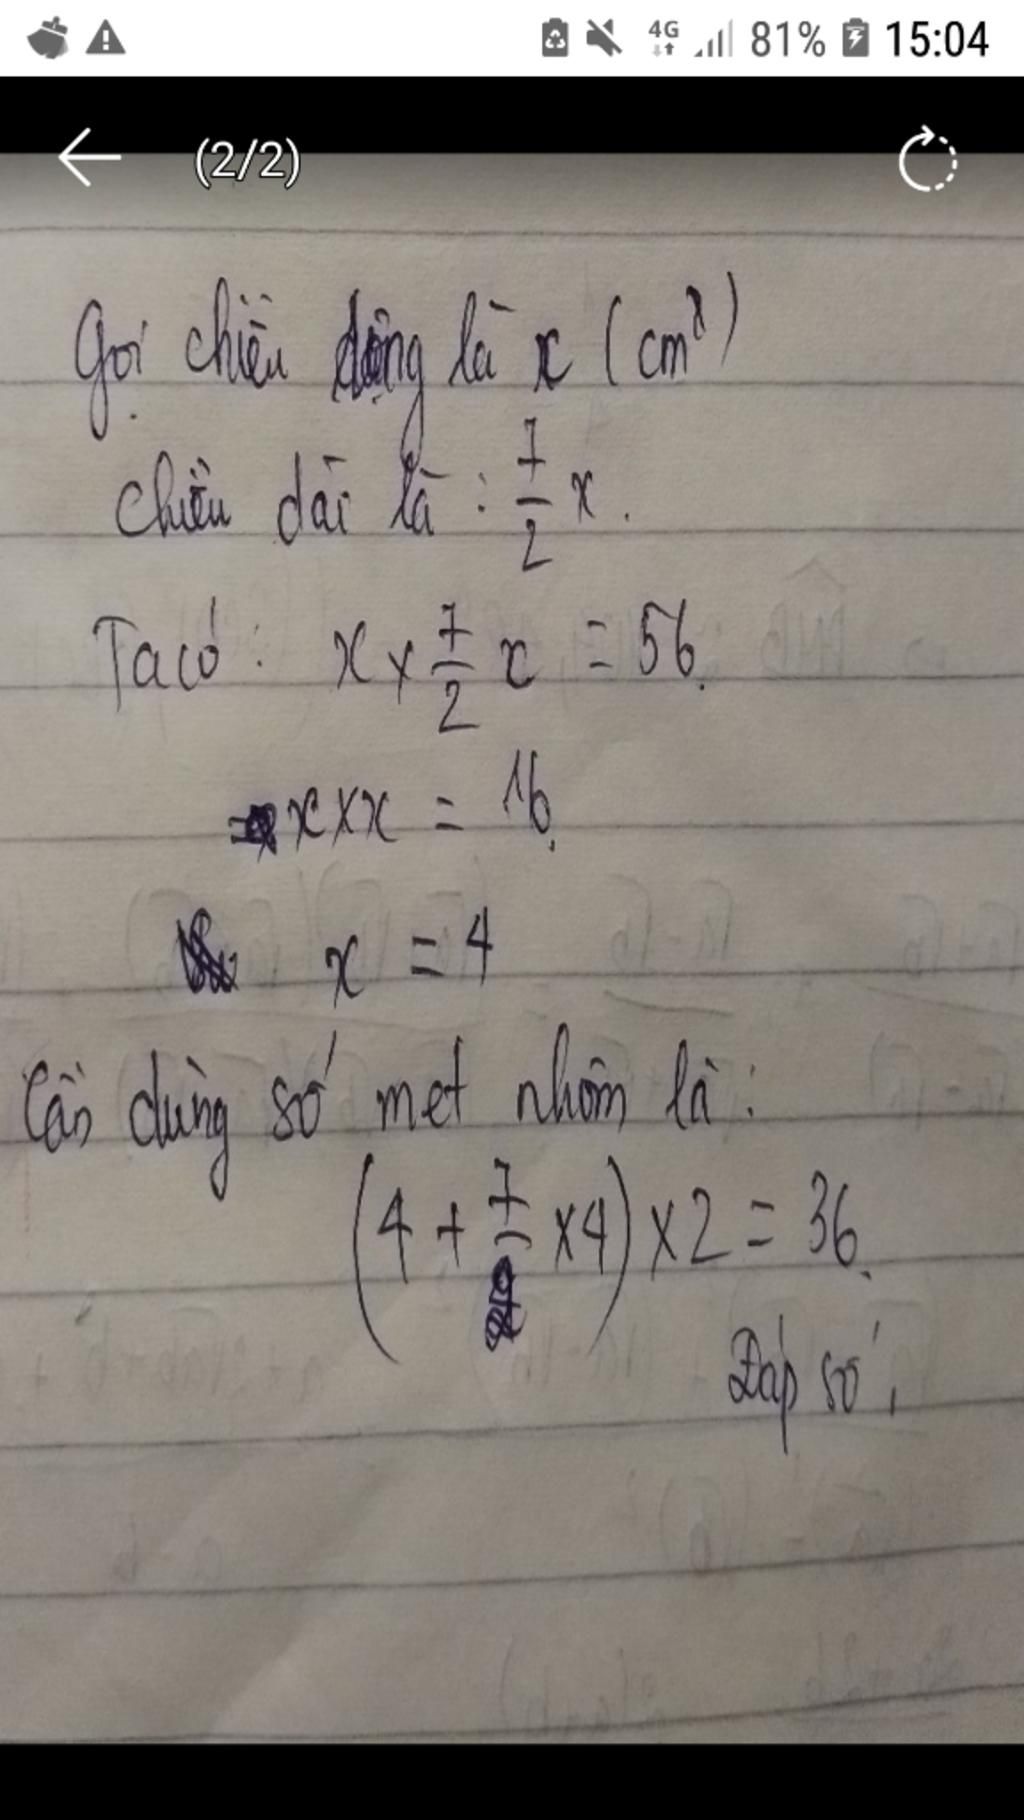 4G 81% 15:04
(2/2)
Gọi chiều rộng là x (cm²)
chiều dài là : 7/2 x.
Ta có : x × 7/2 x = 56.
x × x = 16.
x = 4
Cần dùng số met nhôm là :
(4 + 7/2 × 4) × 2 = 36.
Đáp số,